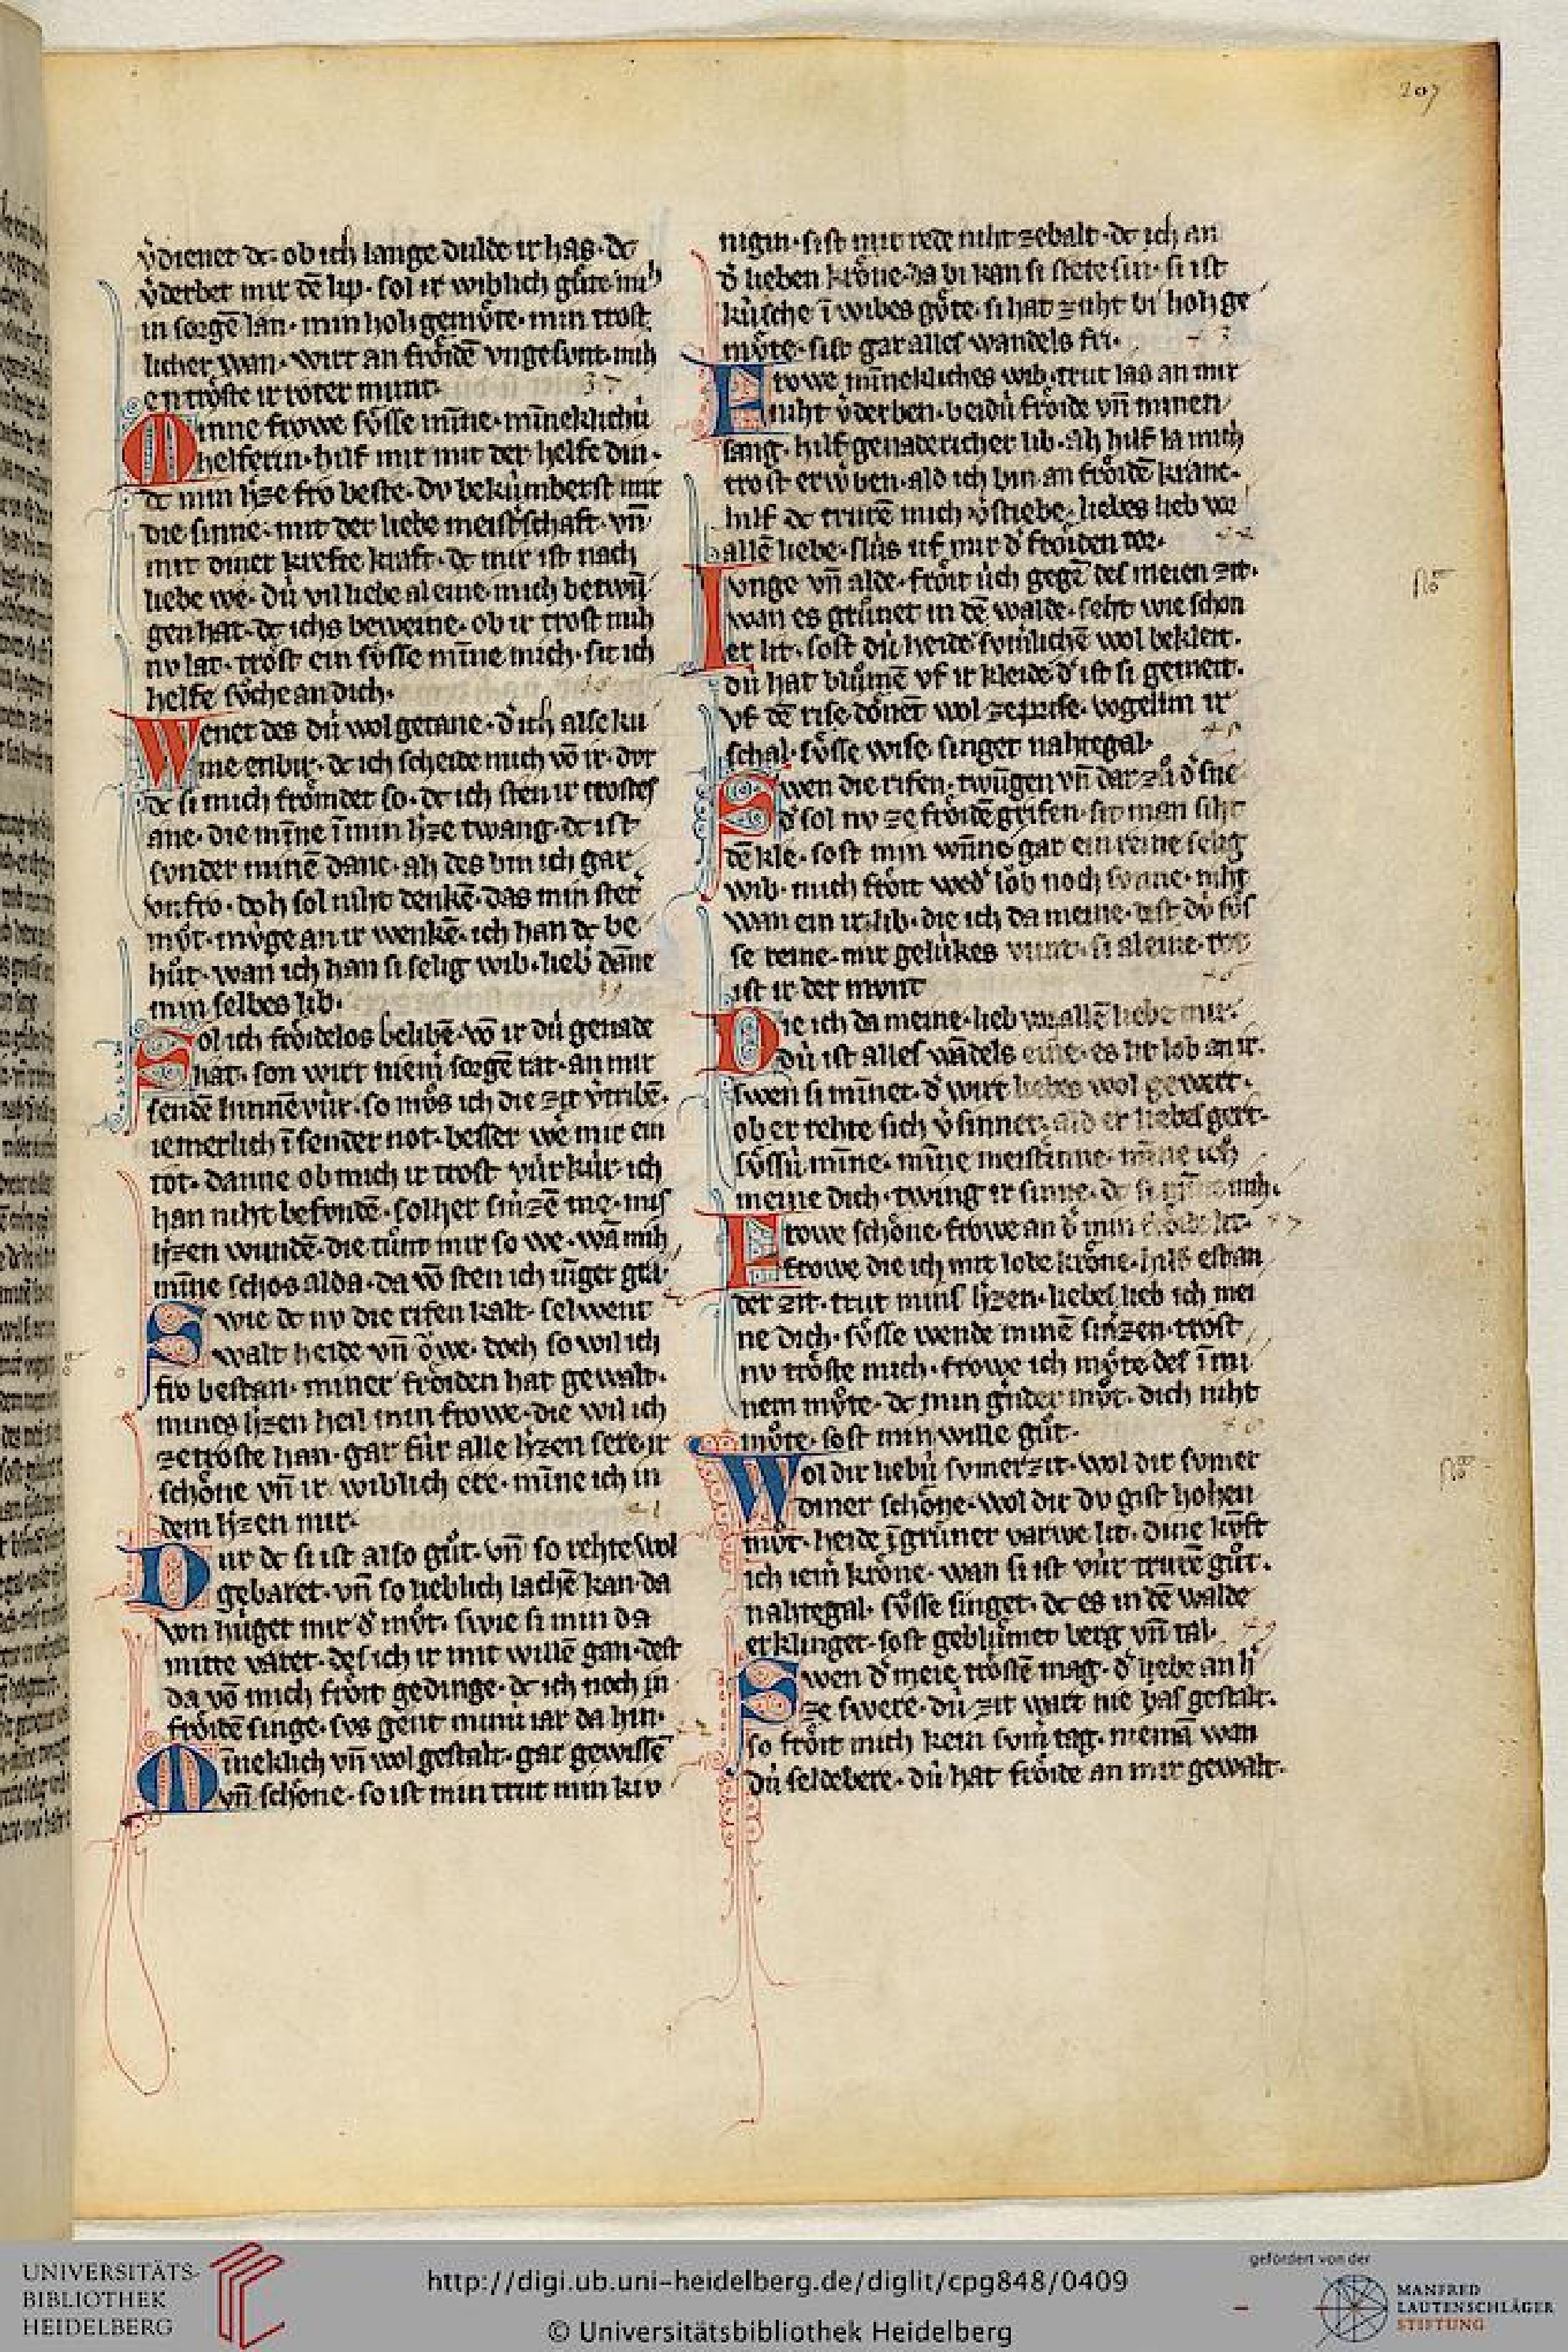 207
v̓dienet dc. ob ich lange dulde ir has. dc
v̓derbet mir dē lip. sol ir wiblich gůte mih
in sorgē lan. min hoh gemu̍te. min trost
licher wan. wirt an frőidē vngesunt. mih
entrőste ir roter munt.
37
Minne frowe su̍sse mīne. mīneklichů
helferin. hilf mir mit der helfe din.
dc min h̓ze fro beste. dv bekůmberst mir
die sinne. mit der liebe meist̓schaft. vn̄
mit diner krefte kraft. dc mir ist nach
liebe we. dů vil liebe aleine mich betwū
gen hat. dc ichs beweine. ob ir trost mih
nv lat. trőst ein su̍sse mīne mich. sit ich
helfe sůche an dich.
Wenet des dů wolgetane. d̓ ich alse ků
me enbir. dc ich scheide mich vō ir. dvr
dc si mich frőmdet so. dc ich sten ir trostes
ane. die mīne ī min h̓ze twang. dc ist
sunder minē danc. ah des bin ich gar
vnfro. doh sol niht denkē. das min stet̓
můt. můge an ir wenkē. ich han dc be
hůt. wan ich han si selig wib. lieb̓ dāne
min selbes lib.
Sol ich frőidelos belibē. vō ir dů genade
hat. son wirt niem̓ sorgē rat. an mir
sendē hinnē vůr. so můs ich die zit v̓tribē.
iemerlich ī sender not. besser we mir ein
tot. danne ob mich ir trost vůr kůr. ich
han niht befundē. solher sm̓zē me. mis
h̓zen wundē. die tůnt mir so we. wā mih
mīne schos alda. da vō sten ich iung̓ gra.
Swie dc nv die rifen kalt. selwent
walt heide vn̄ őwe. doch so wil ich
fro bestan. miner frőiden hat gewalt.
mines h̓zen heil min frowe. die wil ich
ze troste han. gar fůr alle h̓zen sere. ir
schőne vn̄ ir wiblich ere. mīne ich in
dem h̓zen mir.
41
Dur dc si ist also gůt. vn̄ so rehte wol
gebaret. vn̄ so lieblich lachē kan. da
von hůget mir d̓ můt. swie si min da
mitte varet. des ich ir mit willē gan. dest
da vō mich frőit gedinge. dc ich noch in
frőidē singe. sus gent minů iar da hin.
Mīneklich vn̄ wol gestalt. gar gewissē
vn̄ schőne. so ist min trut min kiv
nigin. sist mit rede niht ze balt. dc ich an
d̓ lieben krőne. da bi kan si stete sin. si ist
kůsche ī wibes gůte. si hat zuht bi hoh ge
můte. sist gar alles wandels fri.
Frowe mīnekliches wib. trut las an mir
niht v̓derben. beidů frőide vn̄ minen
sang. hilf genadericher lib. ah hilf la mich
trost erw̓ben. ald ich bin an frőidē kranc.
hilf dc trurē mich v̓stiebe. liebes lieb vor
allē liebe. slůs uf mir d̓ frőiden tor.
Iunge vn̄ alde. frőit ůch gegē des meien zit.
wan es grůnet in dē walde. seht wie schon
er lit. sost dů heide sum̓lichē wol bekleit.
dů hat blůmē vf ir kleide. d̓ ist si gemeit.
vf dē rise. dőnēt wol ze prise. vogellin ir
schal. su̍sse wise. singet nahtegal.
45
Swen die rifen. twūgen vn̄ dar zů d̓ sne
d̓ sol nv ze frőidē grifen. sit man siht
dē kle. sost min wn̄ne gar ein reine selig
wib. mich frőit wed̓ lob noch sunne. niht
wan ein ir lib. die ich da meine. dest dů sůs
se reine. mir gelůkes vunt. si aleine. rot
ist ir der munt
46
Die ich da meine. lieb vor allē liebe mir.
dů ist alles wādels eine. es lit lob an ir.
swen si mīnet. d̓ wirt liebes wol gewert.
ob er rehte sich v̓sinnet. ald er liebes gert.
su̍ssů mīne. mīne meist̓inne. mīne ich
meine dich. twing ir sinne. dc si mīne mih.
Frowe schőne. frowe an d̓ min frőide lit.
47
frowe die ich mit lobe krőne. hilf est an
der zit. trut mins h̓zen. liebes lieb ich mei
ne dich. su̍sse wende minē sm̓zen. trőst
nv trőste mich. frowe ich můte. des ī mi
nem můte. dc min gnder můt. dich niht
můte. sost min wille gůt.
Wol dir liebů sumerzit. wol dir sumer
diner schőne. wol dir dv gist hohen
můt. heide ī grůner varwe lit. dine kvnft
ich iem̓ krőne. wan si ist vůr trurē gůt.
nahtegal su̍sse singet. dc es in dē walde
erklinget. sost geblůmet berg vn̄ tal.
49
Swen d̓ meie trőstē mag. d̓ liebe an h̓
ze swere. dů zit wart nie bas gestalt.
so frőit mich kein sum̓ tag. niemā wan
dů seldebere. dů hat frőide an mir gewalt.
UNIVERSITÄTS-
BIBLIOTHEK
HEIDELBERG
http://digi.ub.uni-heidelberg.de/diglit/cpg848/0409
© Universitätsbibliothek Heidelberg
gefördert von der
MANFRED
LAUTENSCHLÄGER
STIFTUNG